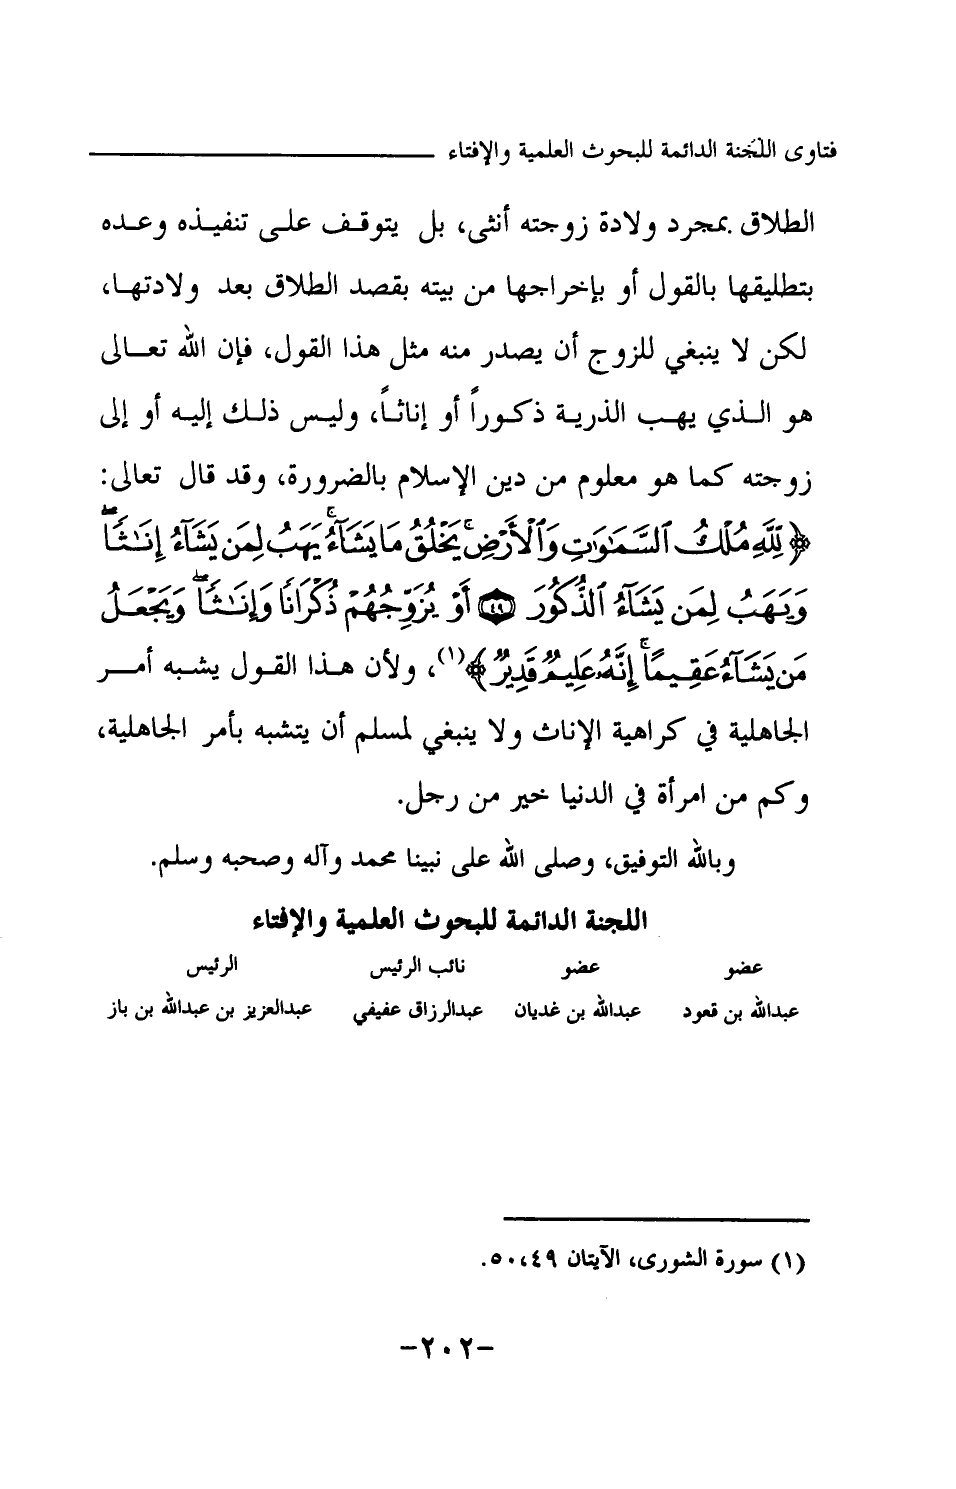 فتاوى اللجنة الدائمة للبحوث العلمية والإفتاء
الطلاق بمجرد ولادة زوجته أنثى، بل يتوقف على تنفيذه وعده
بتطليقها بالقول أو بإخراجها من بيته بقصد الطلاق بعد ولادتها،
لكن لا ينبغي للزوج أن يصدر منه مثل هذا القول، فإن الله تعالى
هو الذي يهب الذرية ذكوراً أو إناثاً، وليس ذلك إليه أو إلى
زوجته كما هو معلوم من دين الإسلام بالضرورة، وقد قال تعالى:
﴿لِلَّهِ مُلْكُ ٱلسَّمَٰوَٰتِ وَٱلْأَرْضِ ۚ يَخْلُقُ مَا يَشَآءُ ۚ يَهَبُ لِمَن يَشَآءُ إِنَٰثًا
وَيَهَبُ لِمَن يَشَآءُ ٱلذُّكُورَ ﴿٤٩﴾ أَوْ يُزَوِّجُهُمْ ذُكْرَانًا وَإِنَٰثًا ۖ وَيَجْعَلُ
مَن يَشَآءُ عَقِيمًا ۚ إِنَّهُۥ عَلِيمٌ قَدِيرٌ﴾(١)، ولأن هذا القول يشبه أمر
الجاهلية في كراهية الإناث ولا ينبغي لمسلم أن يتشبه بأمر الجاهلية،
وكم من امرأة في الدنيا خير من رجل.
وبالله التوفيق، وصلى الله على نبينا محمد وآله وصحبه وسلم.
اللجنة الدائمة للبحوث العلمية والإفتاء
عضو عضو نائب الرئيس الرئيس
عبدالله بن قعود عبدالله بن غديان عبدالرزاق عفيفي عبدالعزيز بن عبدالله بن باز
(١) سورة الشورى، الآيتان ٤٩،٥٠.
-٢٠٢-